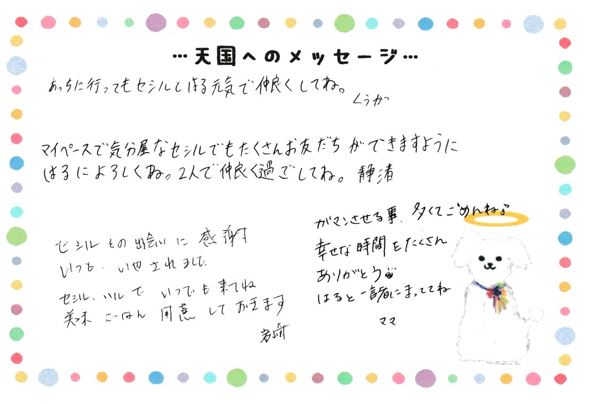 …天国へのメッセージ…
あっちに行ってもセシルとはる元気で仲良くしてね。
くうが
マイペースで気分屋なセシルでもたくさんお友だちができますように
はるによろしくね。2人で仲良く過ごしてね。 静渚
セシルとの出会いに 感謝す
いつも、いやされました
セシル、ハルで いつでも来てね
美味 ごはん 用意 して おきます
ガマンさせる事、多くてごめんね
幸せな時間をたくさん
ありがとう
はると一緒にまっててね
ママ